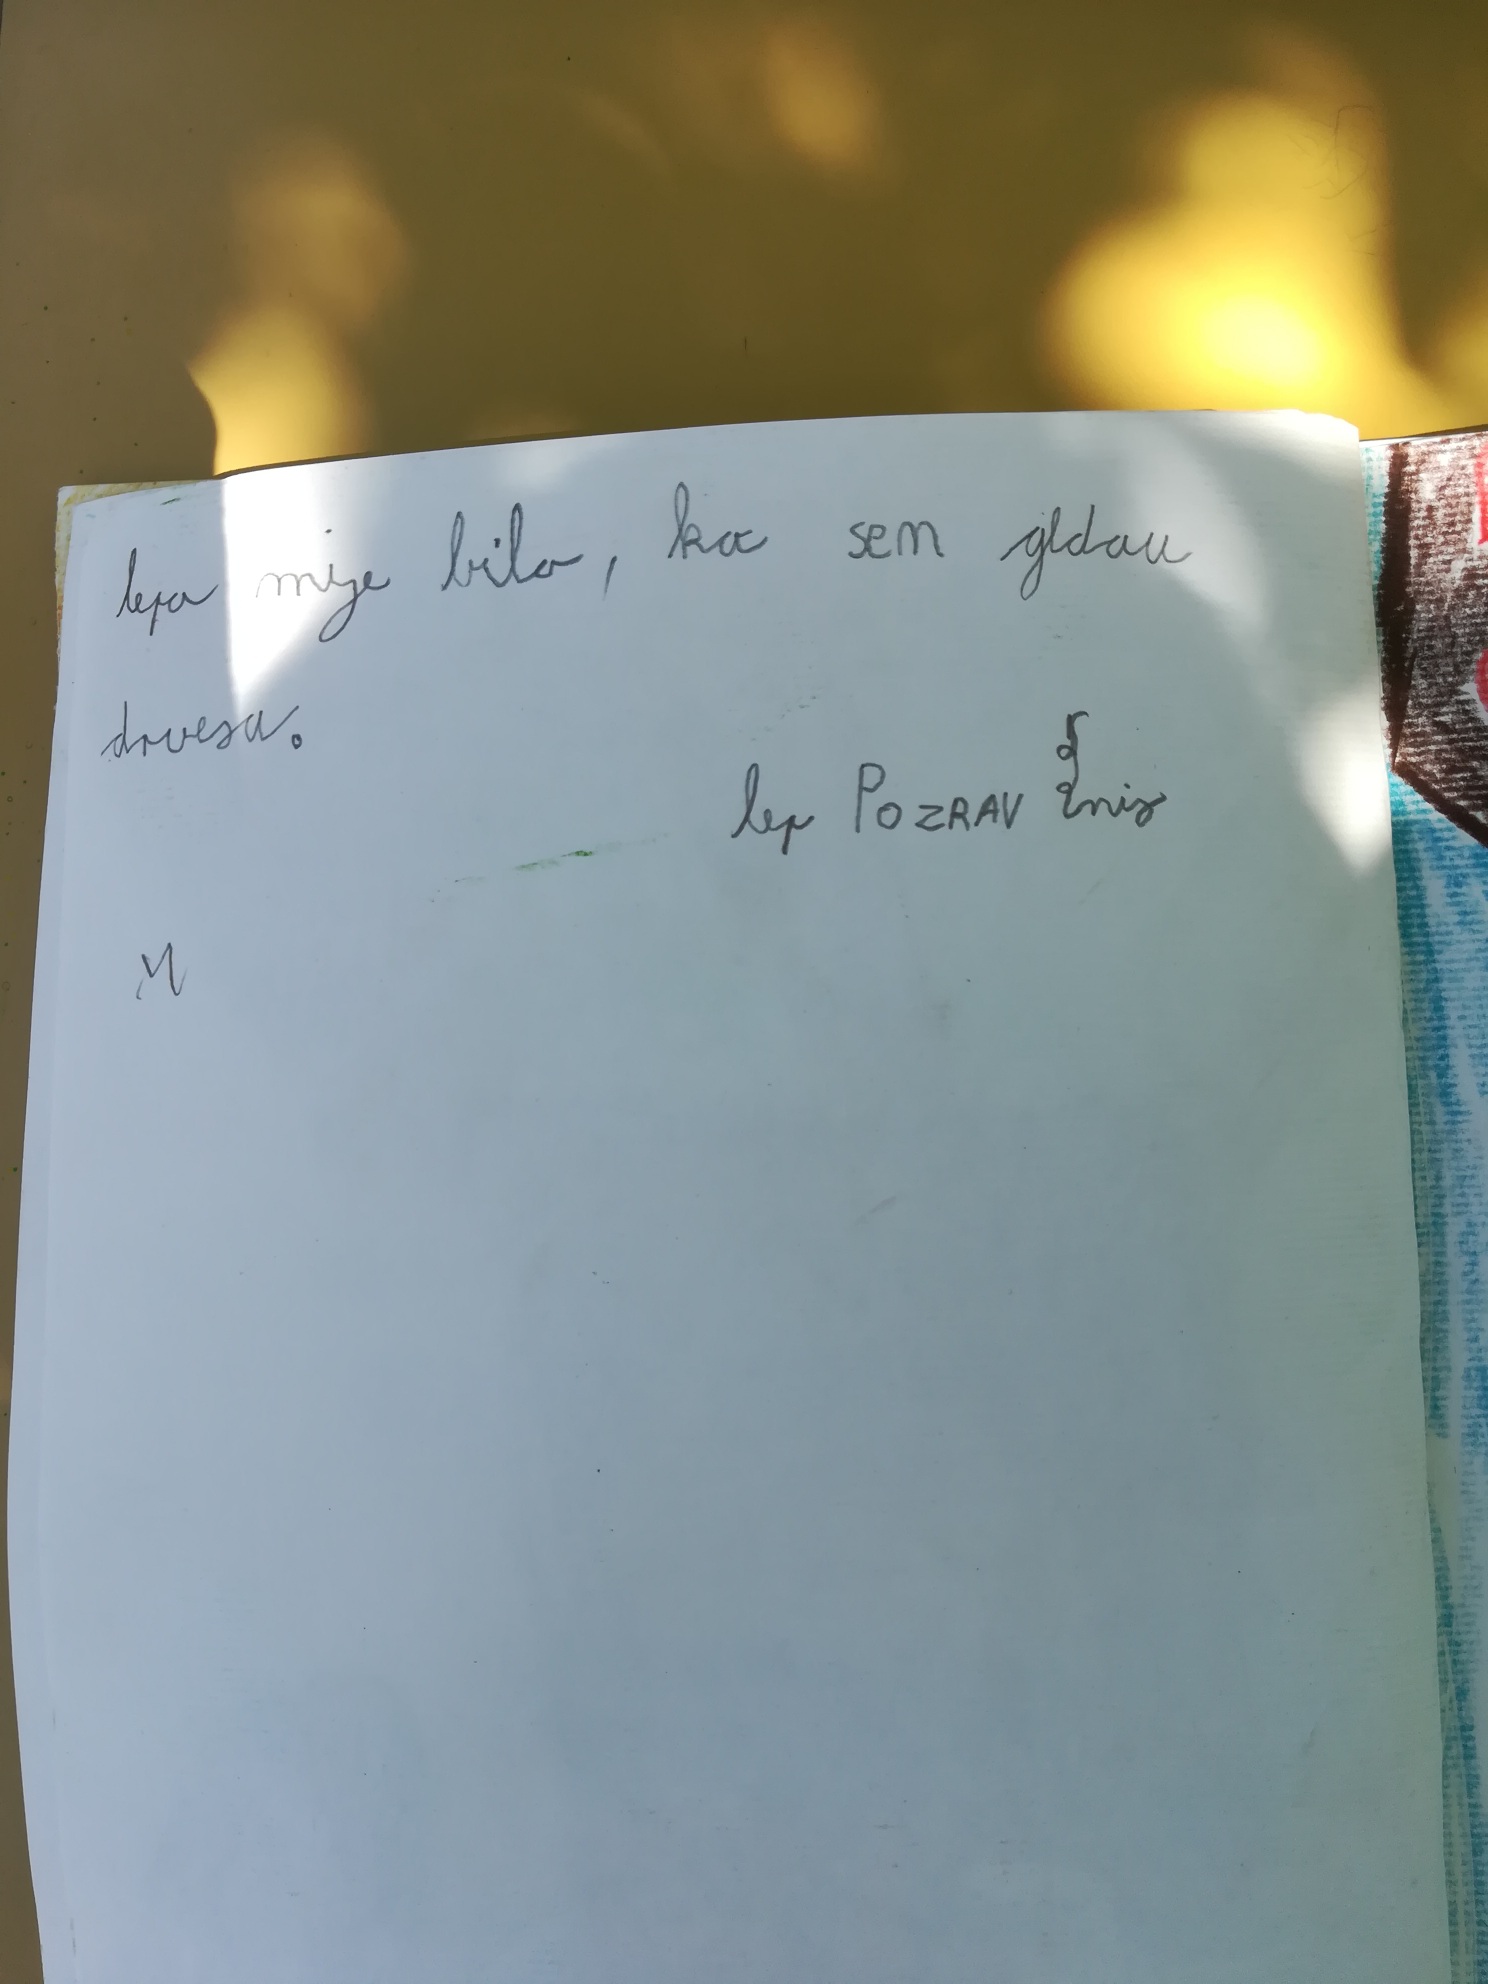 lepa mije bila, ka sem gldau
drvesa.
lep POZRAV Enis